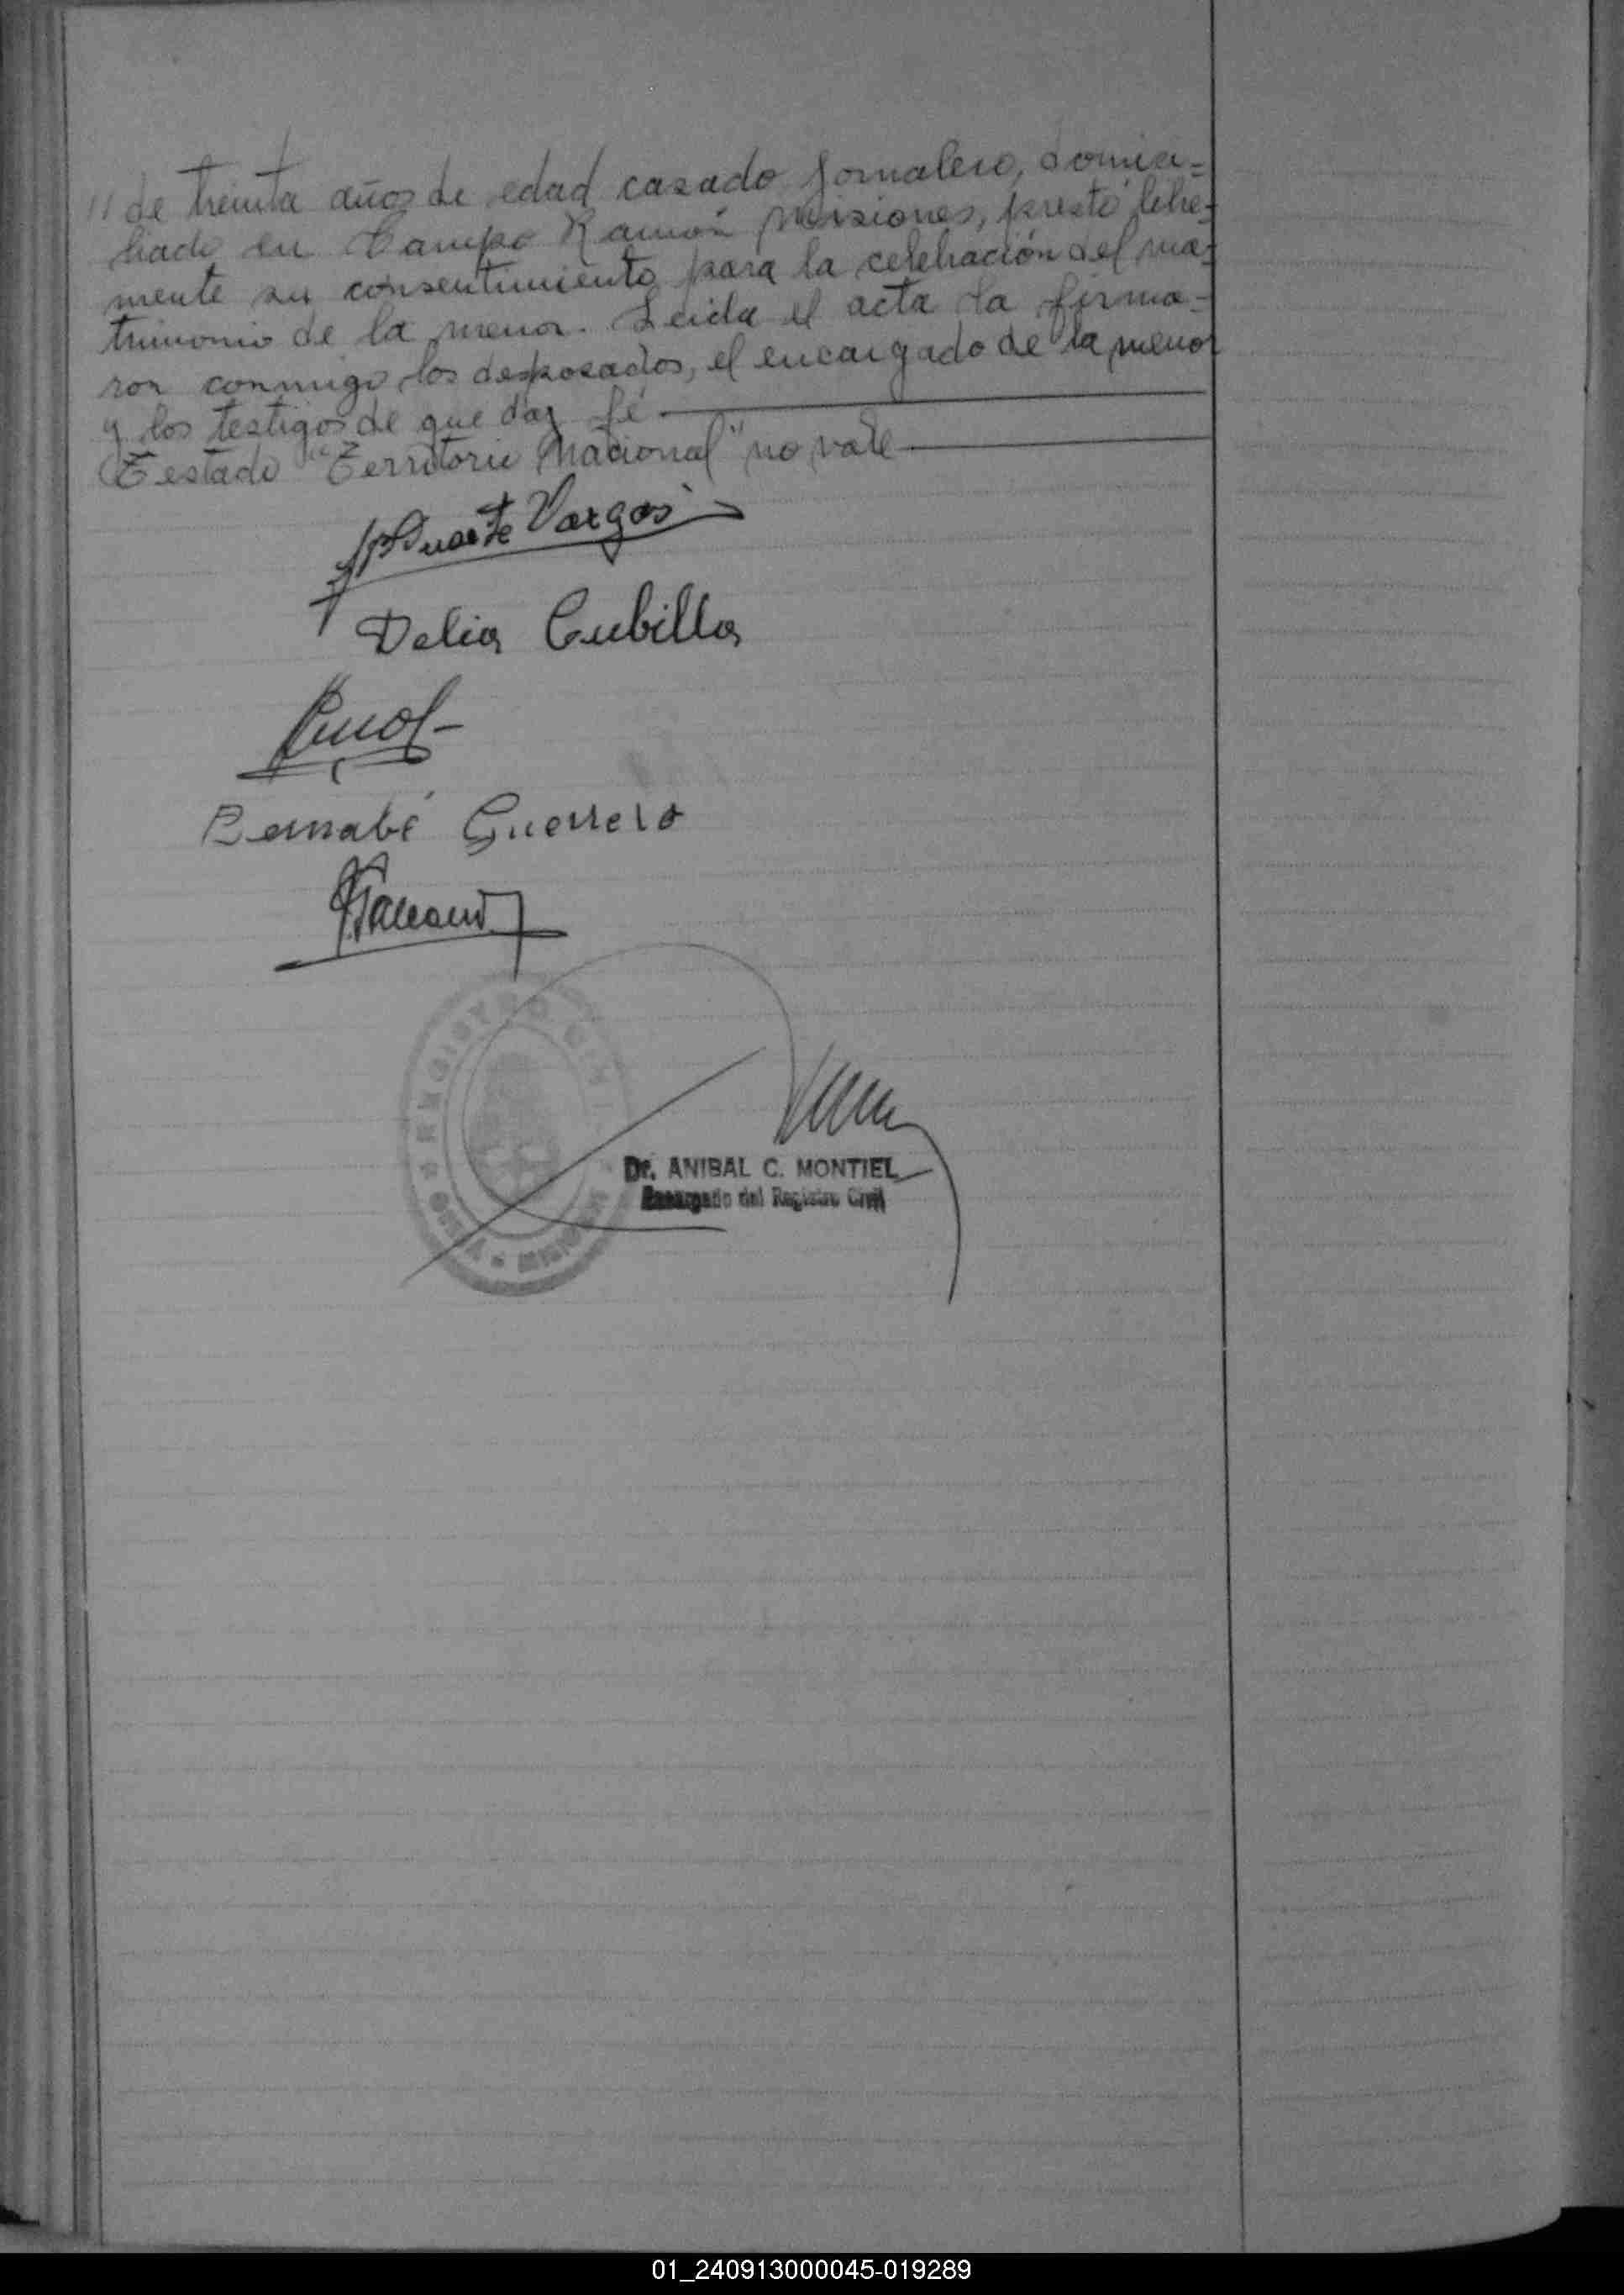 // de treinta años de edad casado jornalero, domici=
liado en Campo Ramón Misiones, prestó libre=
mente su consentimiento para la celebración del ma=
trimonio de la menor. Leida el acta la firma=
ron conmigo los desposados, el encargado de la menor
y los testigos de que doy fé.
Testado "Territorio Nacional" no vale
Duarte Vargas
Delia Cubilla
Bernabé Guerrero
REGISTRO CIVIL
MISIONES
Dr. ANIBAL C. MONTIEL
Encargado del Registro Civil
01_240913000045-019289